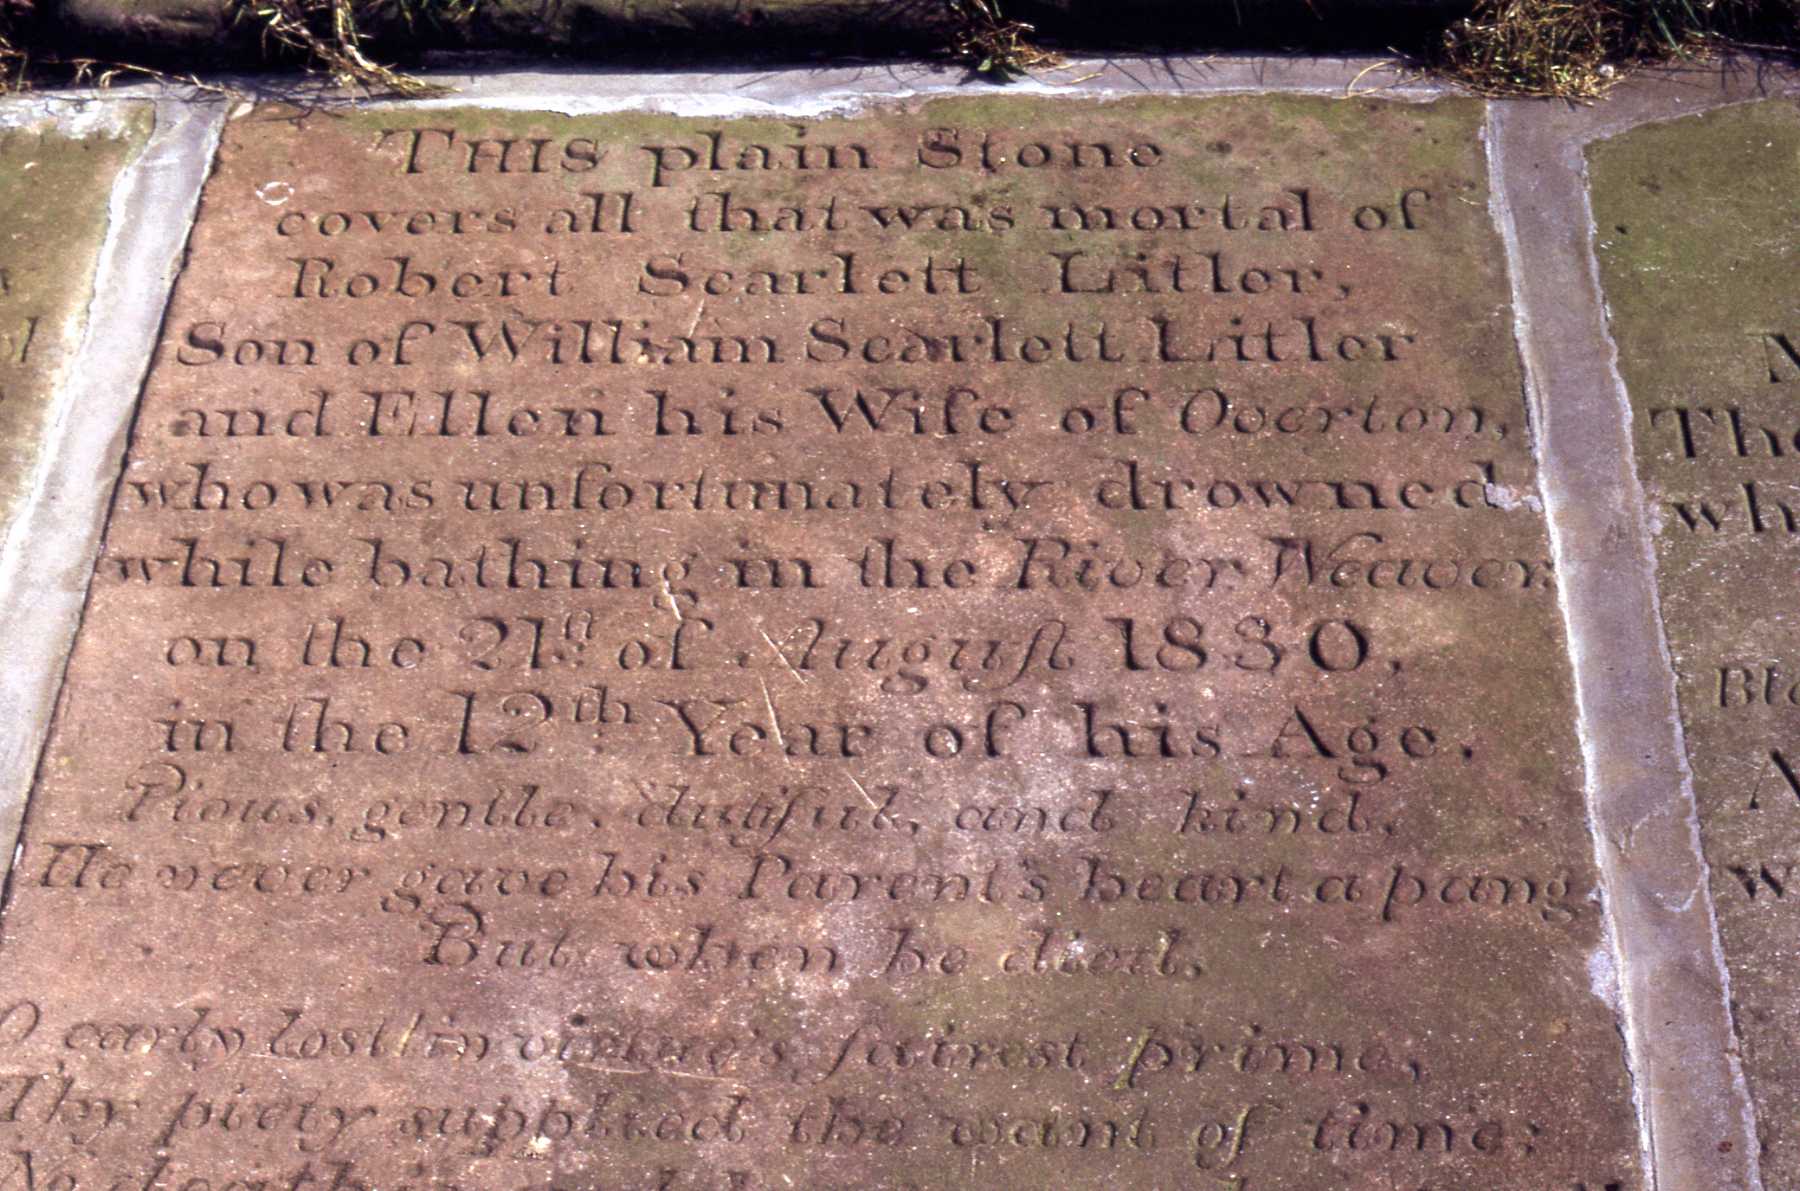 THIS plain Stone
covers all that was mortal of
Robert Scarlett Litler,
Son of William Scarlett Litler
and Ellen his Wife of Overton,
who was unfortunately drowned
while bathing in the River Weaver
on the 21st of August 1830,
in the 12th Year of his Age.
Pious, gentle, dutiful, and kind,
He never gave his Parent's heart a pang,
But when he died.
O early lost! in virtue's fairest prime,
Thy piety supplied the want of time;
No death is